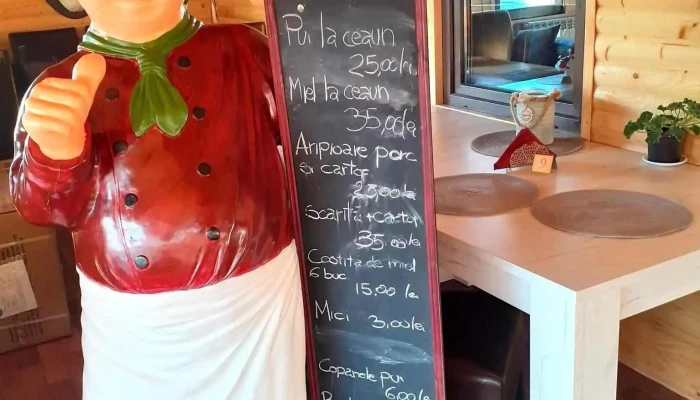 Pui la ceaun
25,00 lei
Miel la ceaun
35,00 lei
Aripioare porc
si cartof
25,00 lei
Scarita + cartofi
35,00 lei
Costita de miel
6 buc
15,00 lei
Mici 3,00 lei
Copanele pui
6,00 lei
9